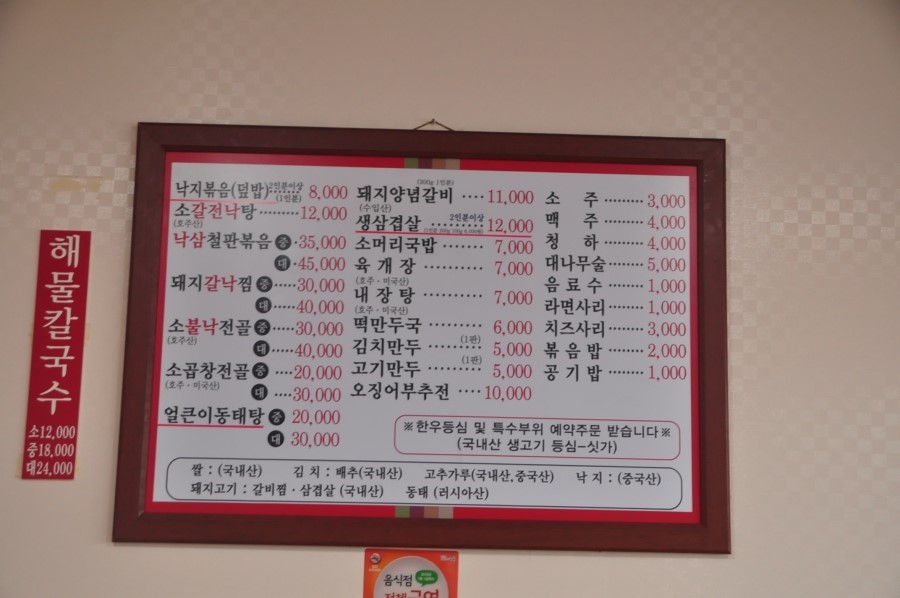 해물칼국수
소12,000
중18,000
대24,000
낙지볶음(덮밥) 2인분이상 (1인분) 8,000
소갈전낙탕 ········· 12,000
(호주산)
낙삼철판볶음 중 · 35,000
대 · 45,000
돼지갈낙찜 중 ····· 30,000
대 ····· 40,000
소불낙전골 중 ····· 30,000
(호주산)
대 ····· 40,000
소곱창전골 중 ···· 20,000
(호주 · 미국산)
대 ···· 30,000
얼큰이동태탕 중 20,000
대 30,000
(300g 1인분)
돼지양념갈비 ···· 11,000
(수입산)
생삼겹살 2인분이상 ······· 12,000
소머리국밥 ······· 7,000
육개장 ·········· 7,000
(호주 · 미국산)
내장탕 ·········· 7,000
(호주 · 미국산)
떡만두국 ········· 6,000
김치만두 ········ (1판) 5,000
고기만두 ········ (1판) 5,000
오징어부추전 ···· 10,000
소 주 ········ 3,000
맥 주 ········ 4,000
청 하 ········ 4,000
대나무술 ······· 5,000
음 료 수 ······· 1,000
라면사리 ······· 1,000
치즈사리 ······· 3,000
볶 음 밥 ······· 2,000
공 기 밥 ······· 1,000
※한우등심 및 특수부위 예약주문 받습니다※
(국내산 생고기 등심-싯가)
쌀 : (국내산) 김 치 : 배추(국내산) 고추가루(국내산,중국산) 낙 지 : (중국산)
돼지고기 : 갈비찜 · 삼겹살 (국내산) 동태 (러시아산)
음식점